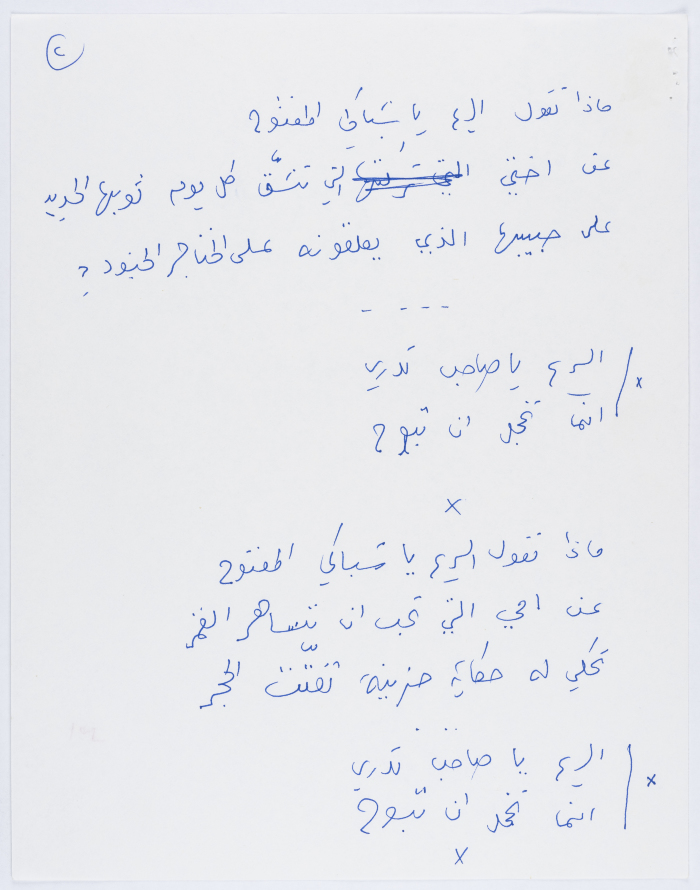 ٢
ماذا تقول الريح يا شباكي المفتوح
عن اختي التي تشق كل يوم ثوبها الجديد
على حبيبها الذي يعلقونه على الخناجر الجنود ؟
- - - -
الريح يا صاحب تدري
انما تخجل ان تبوح
x
x
ماذا تقول الريح يا شباكي المفتوح
عن امي التي تحب ان تساهر القمر
تحكي له حكاية حزينة تفتّت الحجر
الريح يا صاحب تدري
انما تخجل ان تبوح
x
x